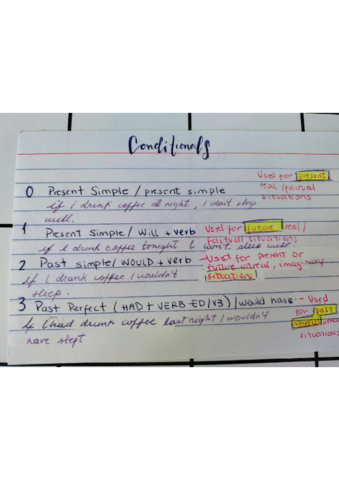 Conditionals
Used for present
real/factual
situations
0 Present Simple / present simple
if I drink coffee at night, I don't sleep
well.
1 Present Simple / Will + verb Used for future real/
factual situations
if I drink coffee tonight I won't sleep well
2 Past simple/WOULD + verb - Used for present or
future unreal, imaginary
situation
If I drank coffee I wouldn't
sleep.
3 Past Perfect (HAD + VERB-ED/V3)/would have - Used
for past
situations
If I had drunk coffee last night I wouldn't
have slept